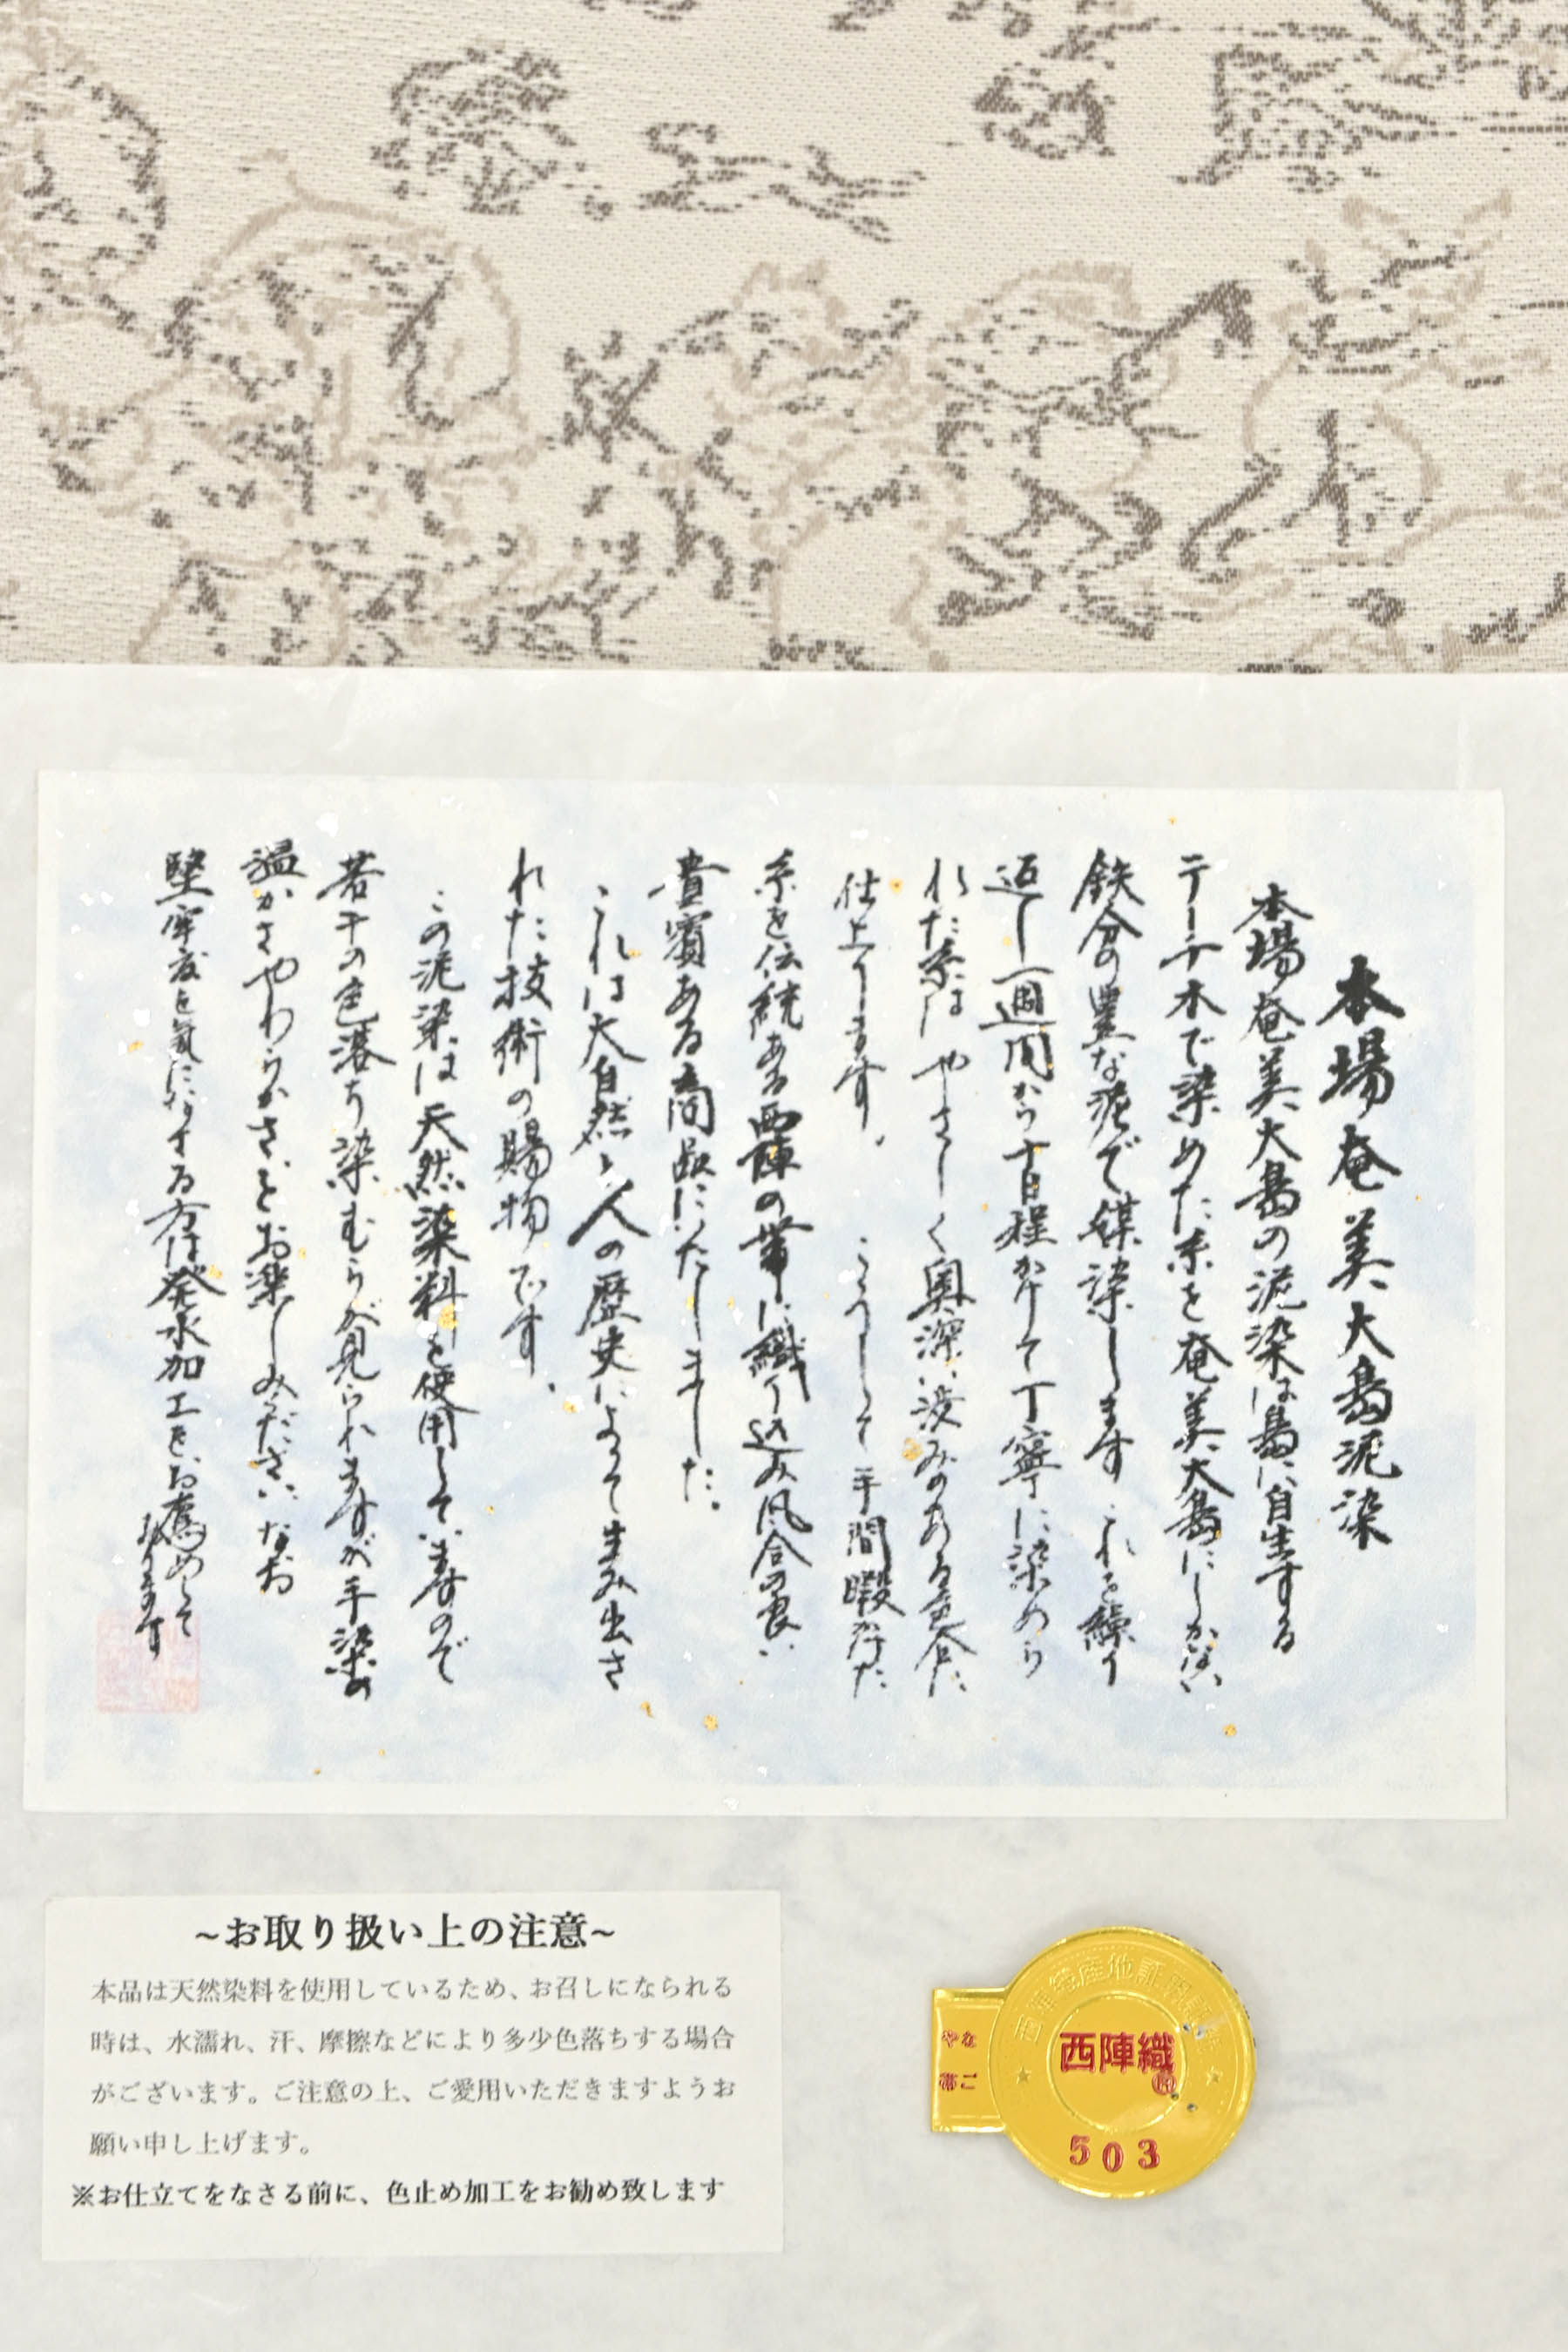 本場奄美大島泥染
本場奄美大島の泥染は島に自生する
テーチ木で染めた糸を奄美大島にしかない
鉄分の豊な泥で媒染します これを繰り
返し一週間から十日程かけて丁寧に染めら
れた糸は やさしく奥深い渋みのある色合に
仕上ります。 こうして手間暇かけた
糸を伝統ある西陣の帯に織り込み風合の良い
貴賓ある商品にいたしました。
これは大自然と人の歴史によって生み出さ
れた技術の賜物です。
この泥染は天然染料を使用していますので
若干の色落ち染むらが見られますが手染の
温かさやわらかさをお楽しみ下さい なお
堅牢度を気になする方は発水加工をお薦めして
おります
~お取り扱い上の注意~
本品は天然染料を使用しているため、お召しになられる
時は、水濡れ、汗、摩擦などにより多少色落ちする場合
がございます。ご注意の上、ご愛用いただきますようお
願い申し上げます。
※お仕立てをなさる前に、色止め加工をお勧め致します
西陣織
503
なごや帯